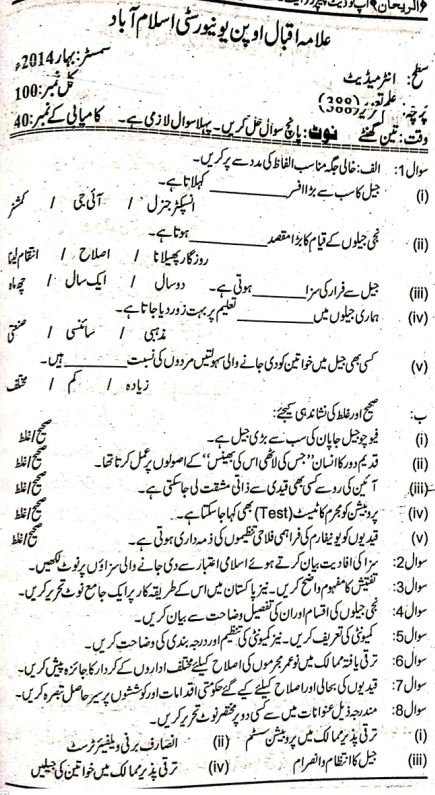 علامہ اقبال اوپن یونیورسٹی اسلام آباد
سطح: انٹرمیڈیٹ سمسٹر: بہار 2014ء
پرچہ: علم تعزیر (388) کل نمبر: 100
وقت: تین گھنٹے نوٹ: پانچ سوال حل کریں۔ پہلا سوال لازمی ہے۔ کامیابی کے نمبر: 40
سوال 1: الف: خالی جگہ مناسب الفاظ کی مدد سے پر کریں۔
(i) جیل کا سب سے بڑا افسر ________ کہلاتا ہے۔
انسپکٹر جنرل / آئی جی / کمشنر
(ii) نجی جیلوں کے قیام کا بڑا مقصد ________ ہوتا ہے۔
روزگار پھیلانا / اصلاح / انتقام لینا
(iii) جیل سے فرار کی سزا ________ ہوتی ہے۔ دو سال / ایک سال / چھ ماہ
(iv) ہماری جیلوں میں ________ تعلیم پر بہت زور دیا جاتا ہے۔
مذہبی / سائنسی / صنعتی
(v) کسی بھی جیل میں خواتین کو دی جانے والی سہولتیں مردوں کی نسبت ________ ہیں۔
زیادہ / کم / مختلف
ب: صحیح اور غلط کی نشاندہی کیجئے:
(i) فیوچو جیل جاپان کی سب سے بڑی جیل ہے۔ صحیح/غلط
(ii) قدیم دور کا انسان "جس کی لاٹھی اس کی بھینس" کے اصولوں پر عمل کرتا تھا۔ صحیح/غلط
(iii) آئین کی رو سے کسی بھی قیدی سے ذاتی مشقت لی جا سکتی ہے۔ صحیح/غلط
(iv) پروبیشن کو مجرم کا ٹیسٹ (Test) بھی کہا جا سکتا ہے۔ صحیح/غلط
(v) قیدیوں کو یونیفارم کی فراہمی فلاحی تنظیموں کی ذمہ داری ہوتی ہے۔ صحیح/غلط
سوال 2: سزا کی افادیت بیان کرتے ہوئے اسلامی اعتبار سے دی جانے والی سزاؤں پر نوٹ لکھیں۔
سوال 3: تفتیش کا مفہوم واضح کریں۔ نیز پاکستان میں اس کے طریقہ کار پر ایک جامع نوٹ تحریر کریں۔
سوال 4: نجی جیلوں کی اقسام اور ان کی تفصیل وضاحت سے بیان کریں۔
سوال 5: کمیونٹی کی تعریف کریں۔ نیز کمیونٹی کی تنظیم اور درجہ بندی کی وضاحت کریں۔
سوال 6: ترقی یافتہ ممالک میں نو عمر مجرموں کی اصلاح کیلئے مختلف اداروں کے کردار کا جائزہ پیش کریں۔
سوال 7: قیدیوں کی بحالی اور اصلاح کیلئے کیے گئے حکومتی اقدامات اور کوششوں پر سیر حاصل تبصرہ کریں۔
سوال 8: مندرجہ ذیل عنوانات میں سے کسی دو پر مختصر نوٹ تحریر کریں۔
(i) ترقی پذیر ممالک میں پروبیشن سسٹم (ii) انصار برنی ویلفیئر ٹرسٹ
(iii) جیل کا انتظام و انصرام (iv) ترقی پذیر ممالک میں خواتین کی جیلیں